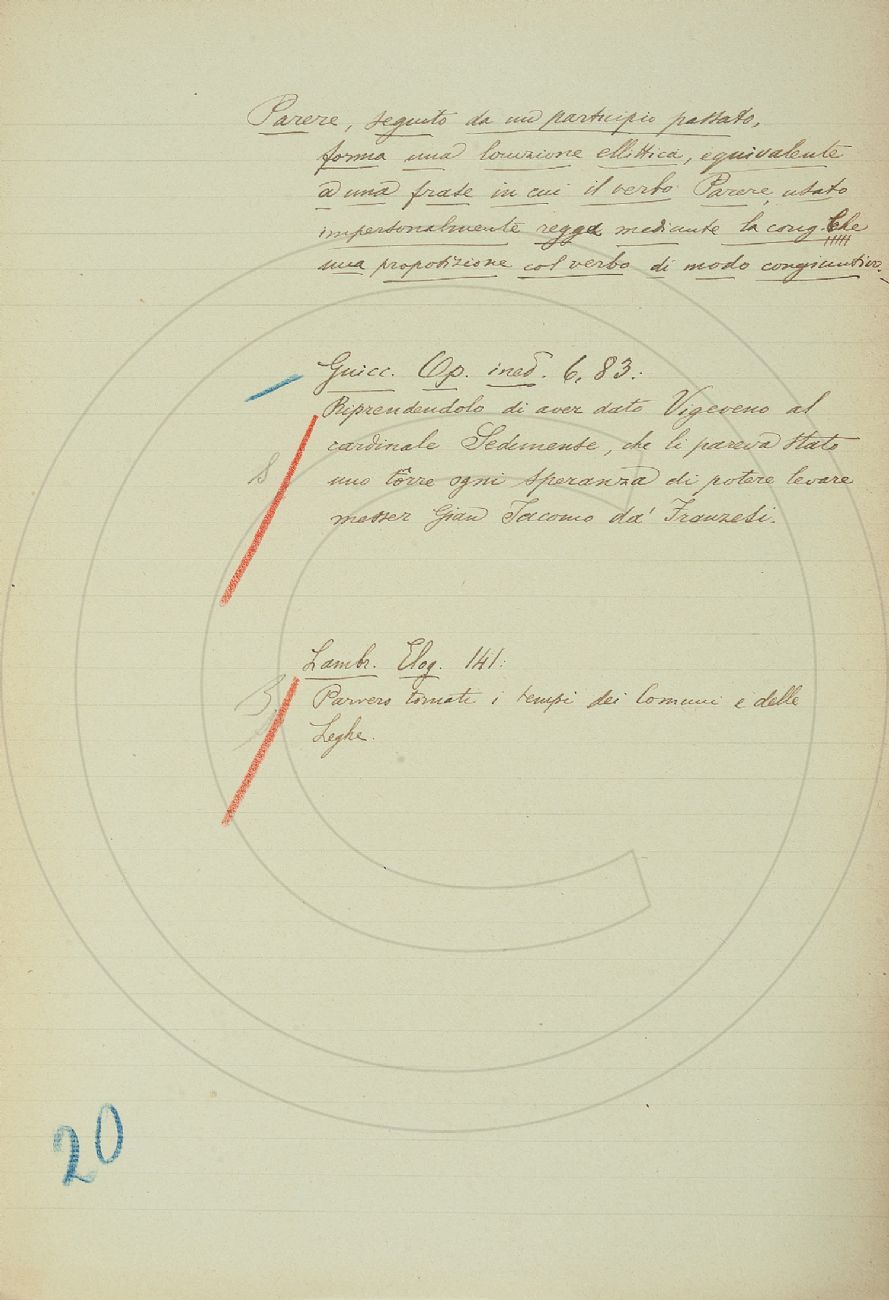 Parere, seguito da un participio passato,
forma una locuzione ellittica, equivalente
a una frase in cui il verbo Parere, usato
impersonalmente regga mediante la cong. Che
una proposizione col verbo di modo congiuntivo.
Guicc. Op. ined. 6, 83:
Riprendendolo di aver dato Vigeveno al
cardinale Sedunense, che li pareva stato
uno tôrre ogni speranza di potere levare
messer Gian Iacomo da' Franzesi.
8
Lambr. Elog. 141:
B.
Parvero tornati i tempi dei Comuni e delle
Leghe.
20